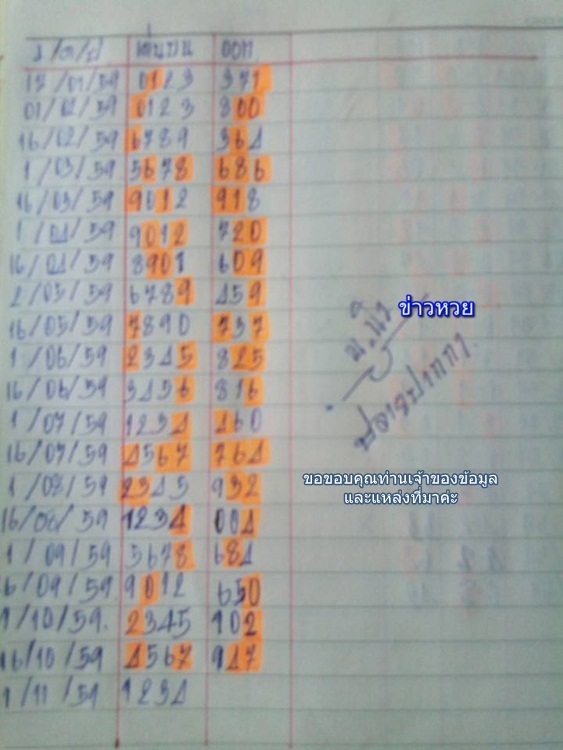 ว/ด/ป เด่นบน ออก
17/01/59 0123 371
01/02/59 0123 800
16/02/59 6789 364
1/03/59 5678 686
16/03/59 9012 918
1/04/59 9012 720
16/04/59 8901 609
2/05/59 6789 459
16/05/59 7890 737
1/06/59 2345 825
16/06/59 3456 816
1/07/59 1234 460
16/07/59 4567 764
1/08/59 2345 932
16/08/59 1234 004
1/09/59 5678 684
6/09/59 9012 650
1/10/59. 2345 102
16/10/59 4567 947
1/11/59 1234
ข่าวหวย
ขอขอบคุณท่านเจ้าของข้อมูล
และแหล่งที่มาค่ะ